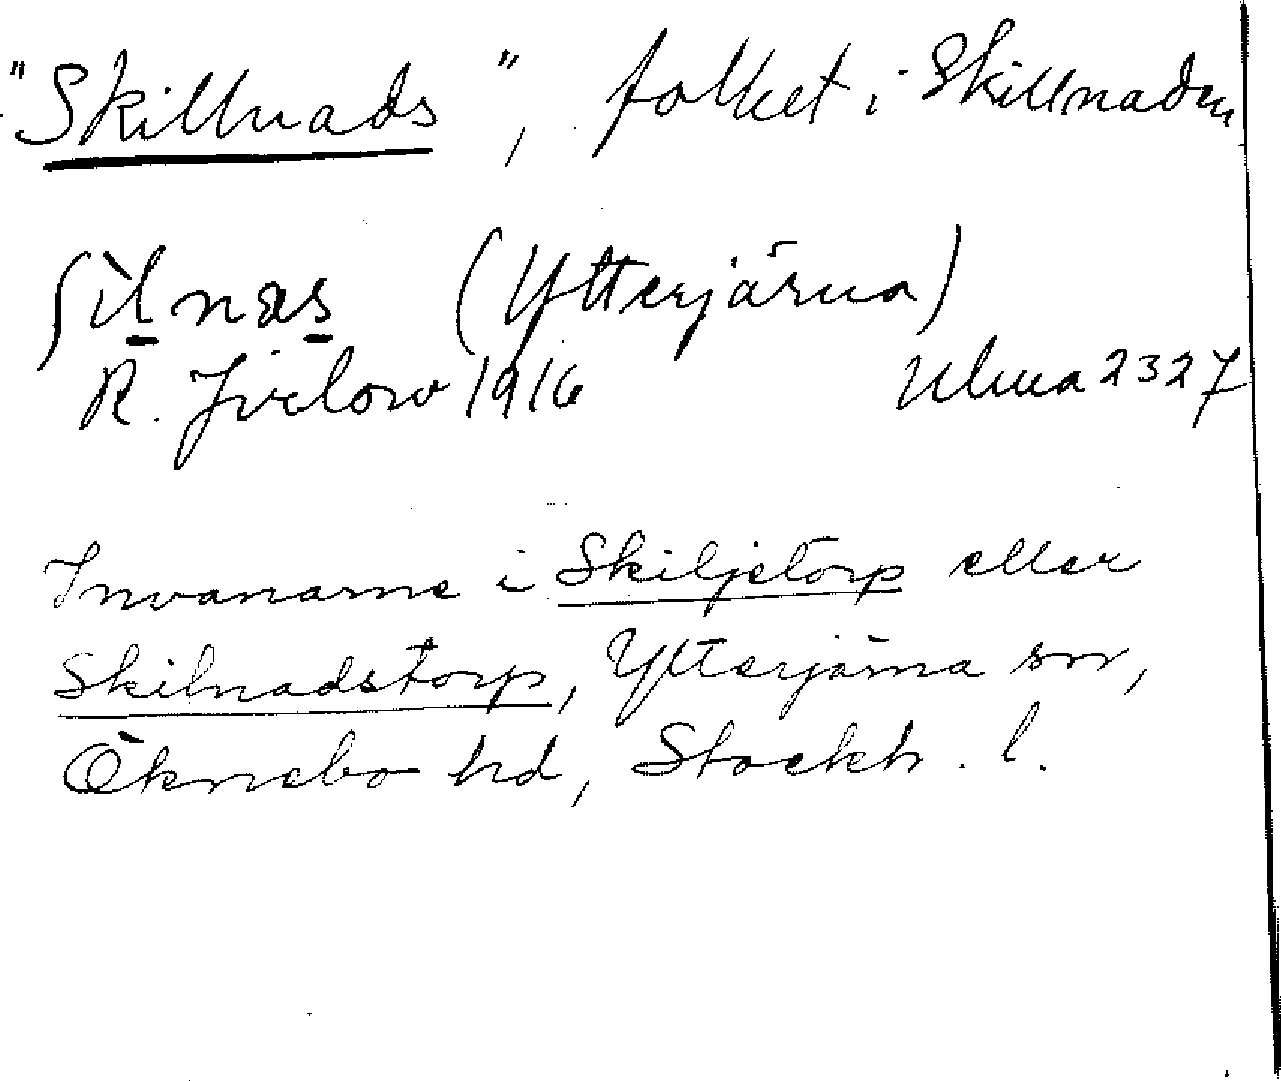 "Skillnads", folket i Skillnaden
ʃìlnas (Ytterjärna)
R. Jirlow 1916 Ulma 2327
Invånarne i Skiljetorp eller
Skilnadstorp, Ytterjärna sn,
Öknebo hd, Stockh. l.